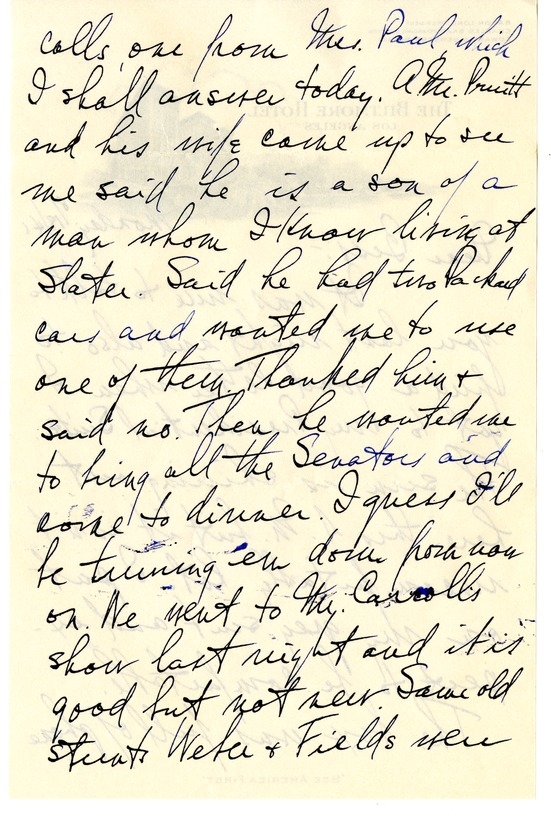 calls, one from Mrs. Paul, which
I shall answer today. A Mr. Pruitt
and his wife came up to see
me said he is a son of a
man whom I know living at
Slater. Said he had two Packard
cars and wanted me to use
one of them. Thanked him &
said no. Then he wanted me
to bring all the Senators and
come to dinner. I guess I'll
be turning em down from now
on. We went to Mr. Carrolls
show last night and it is
good but not new. Same old
stunts Weber & Fields were